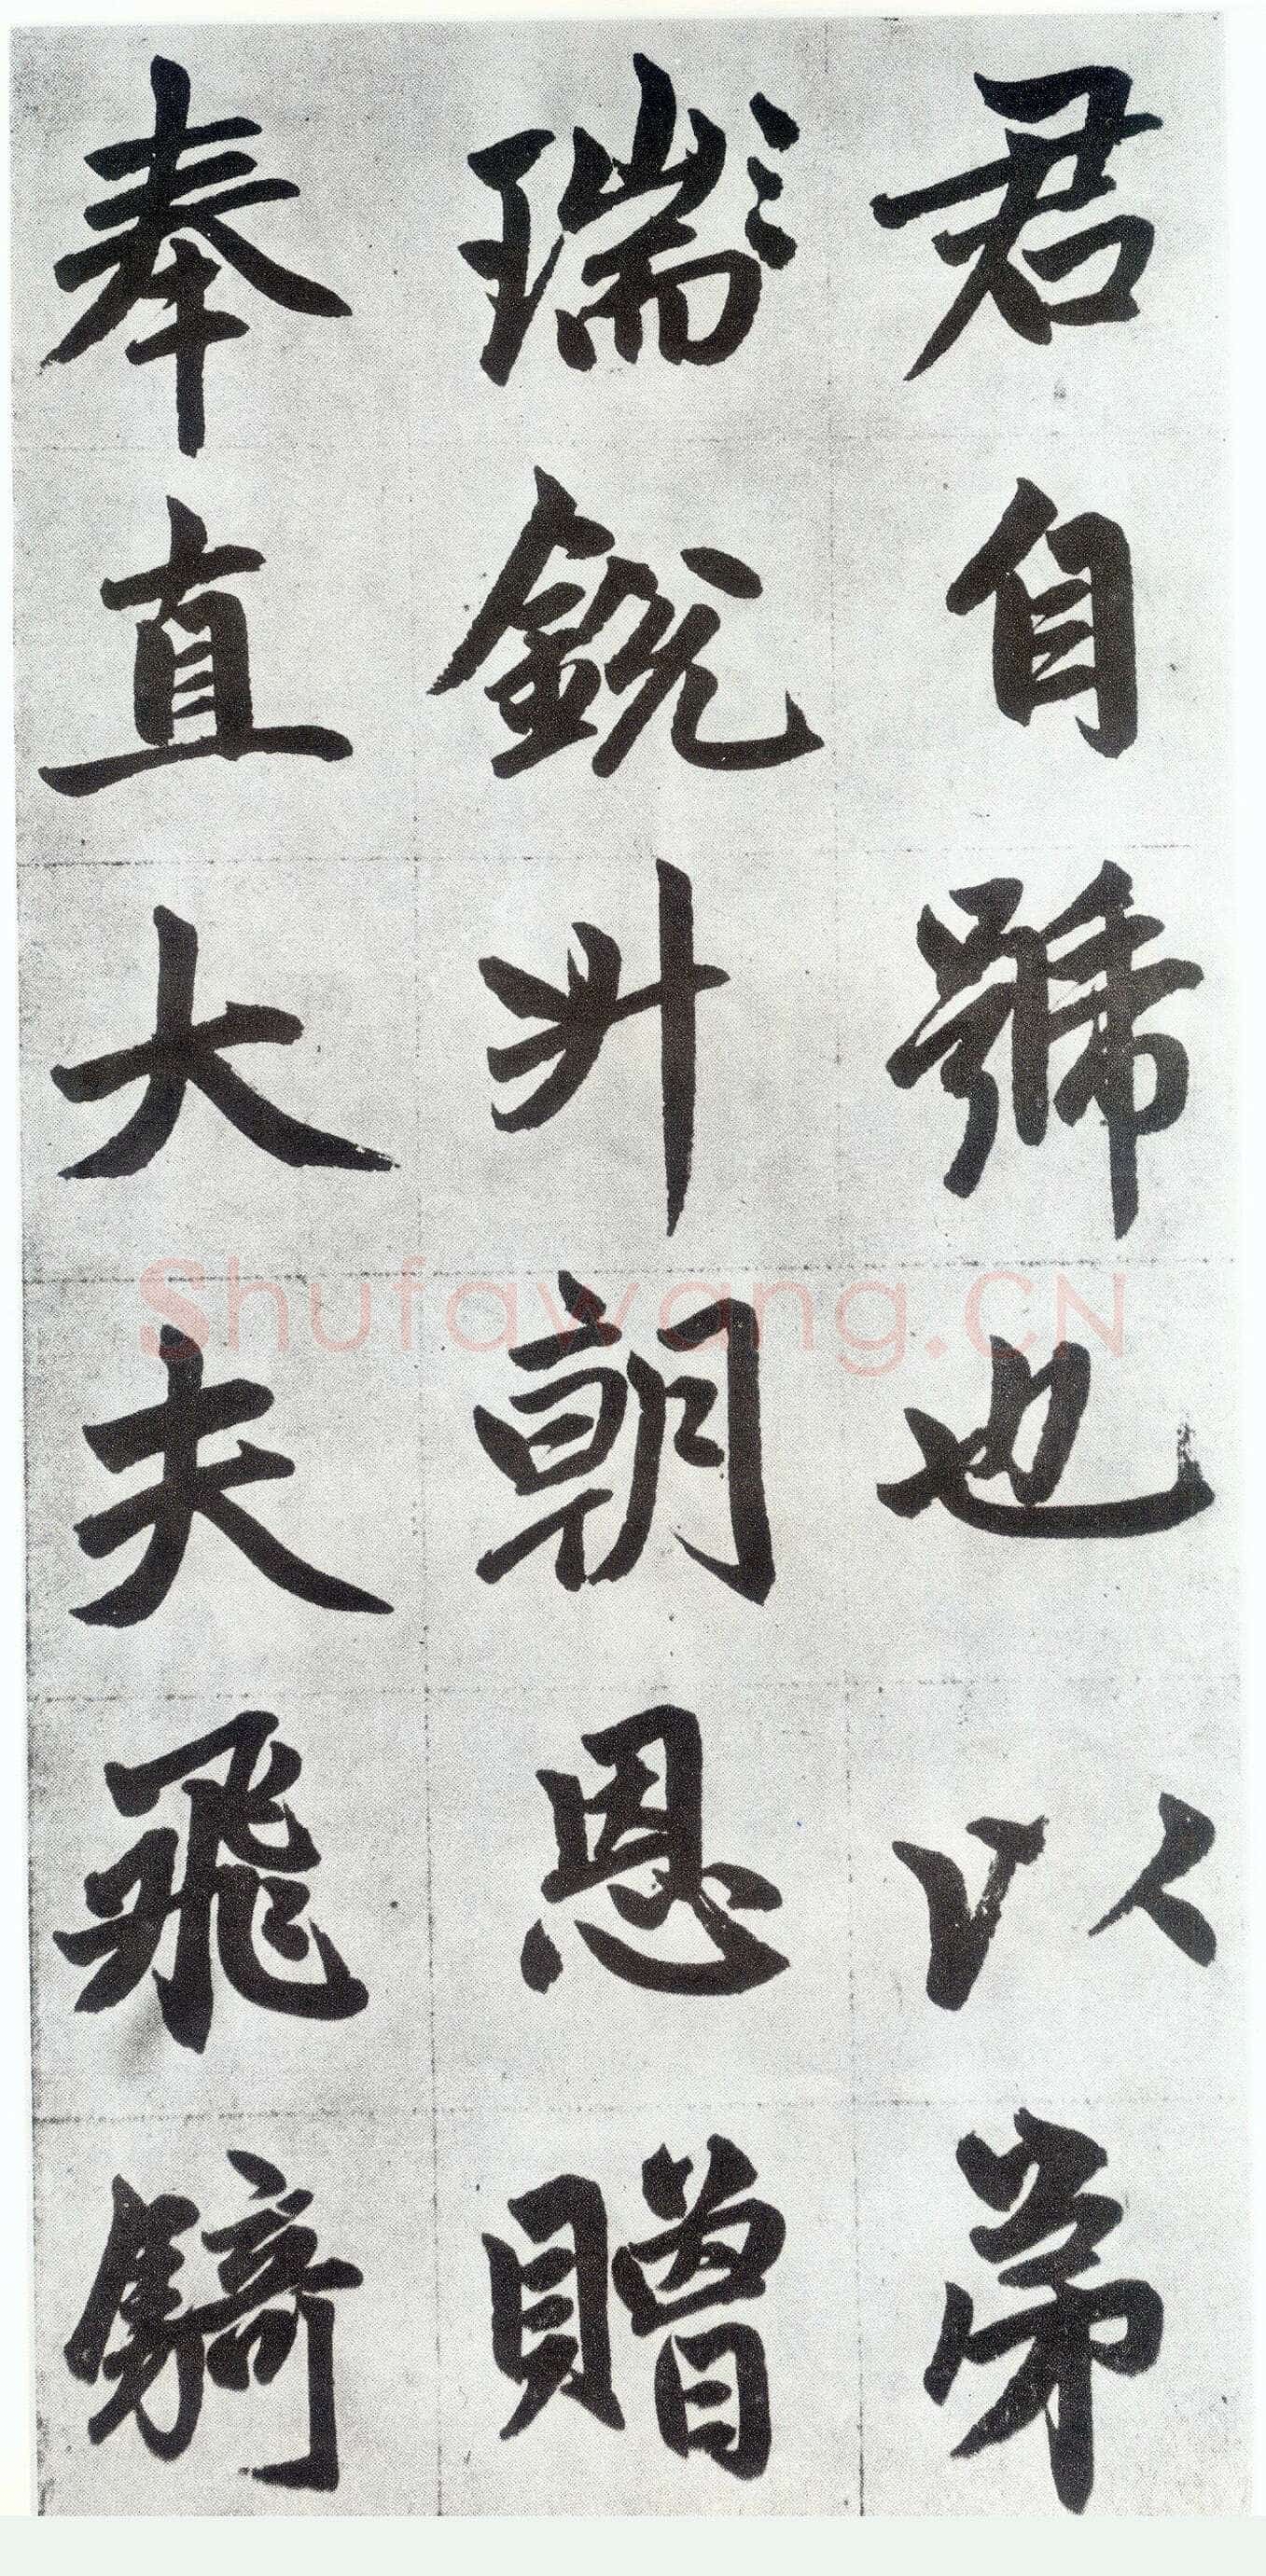 君自號也以弟
瑞銳升朝恩贈
奉直大夫飛騎
Shufawang.CN